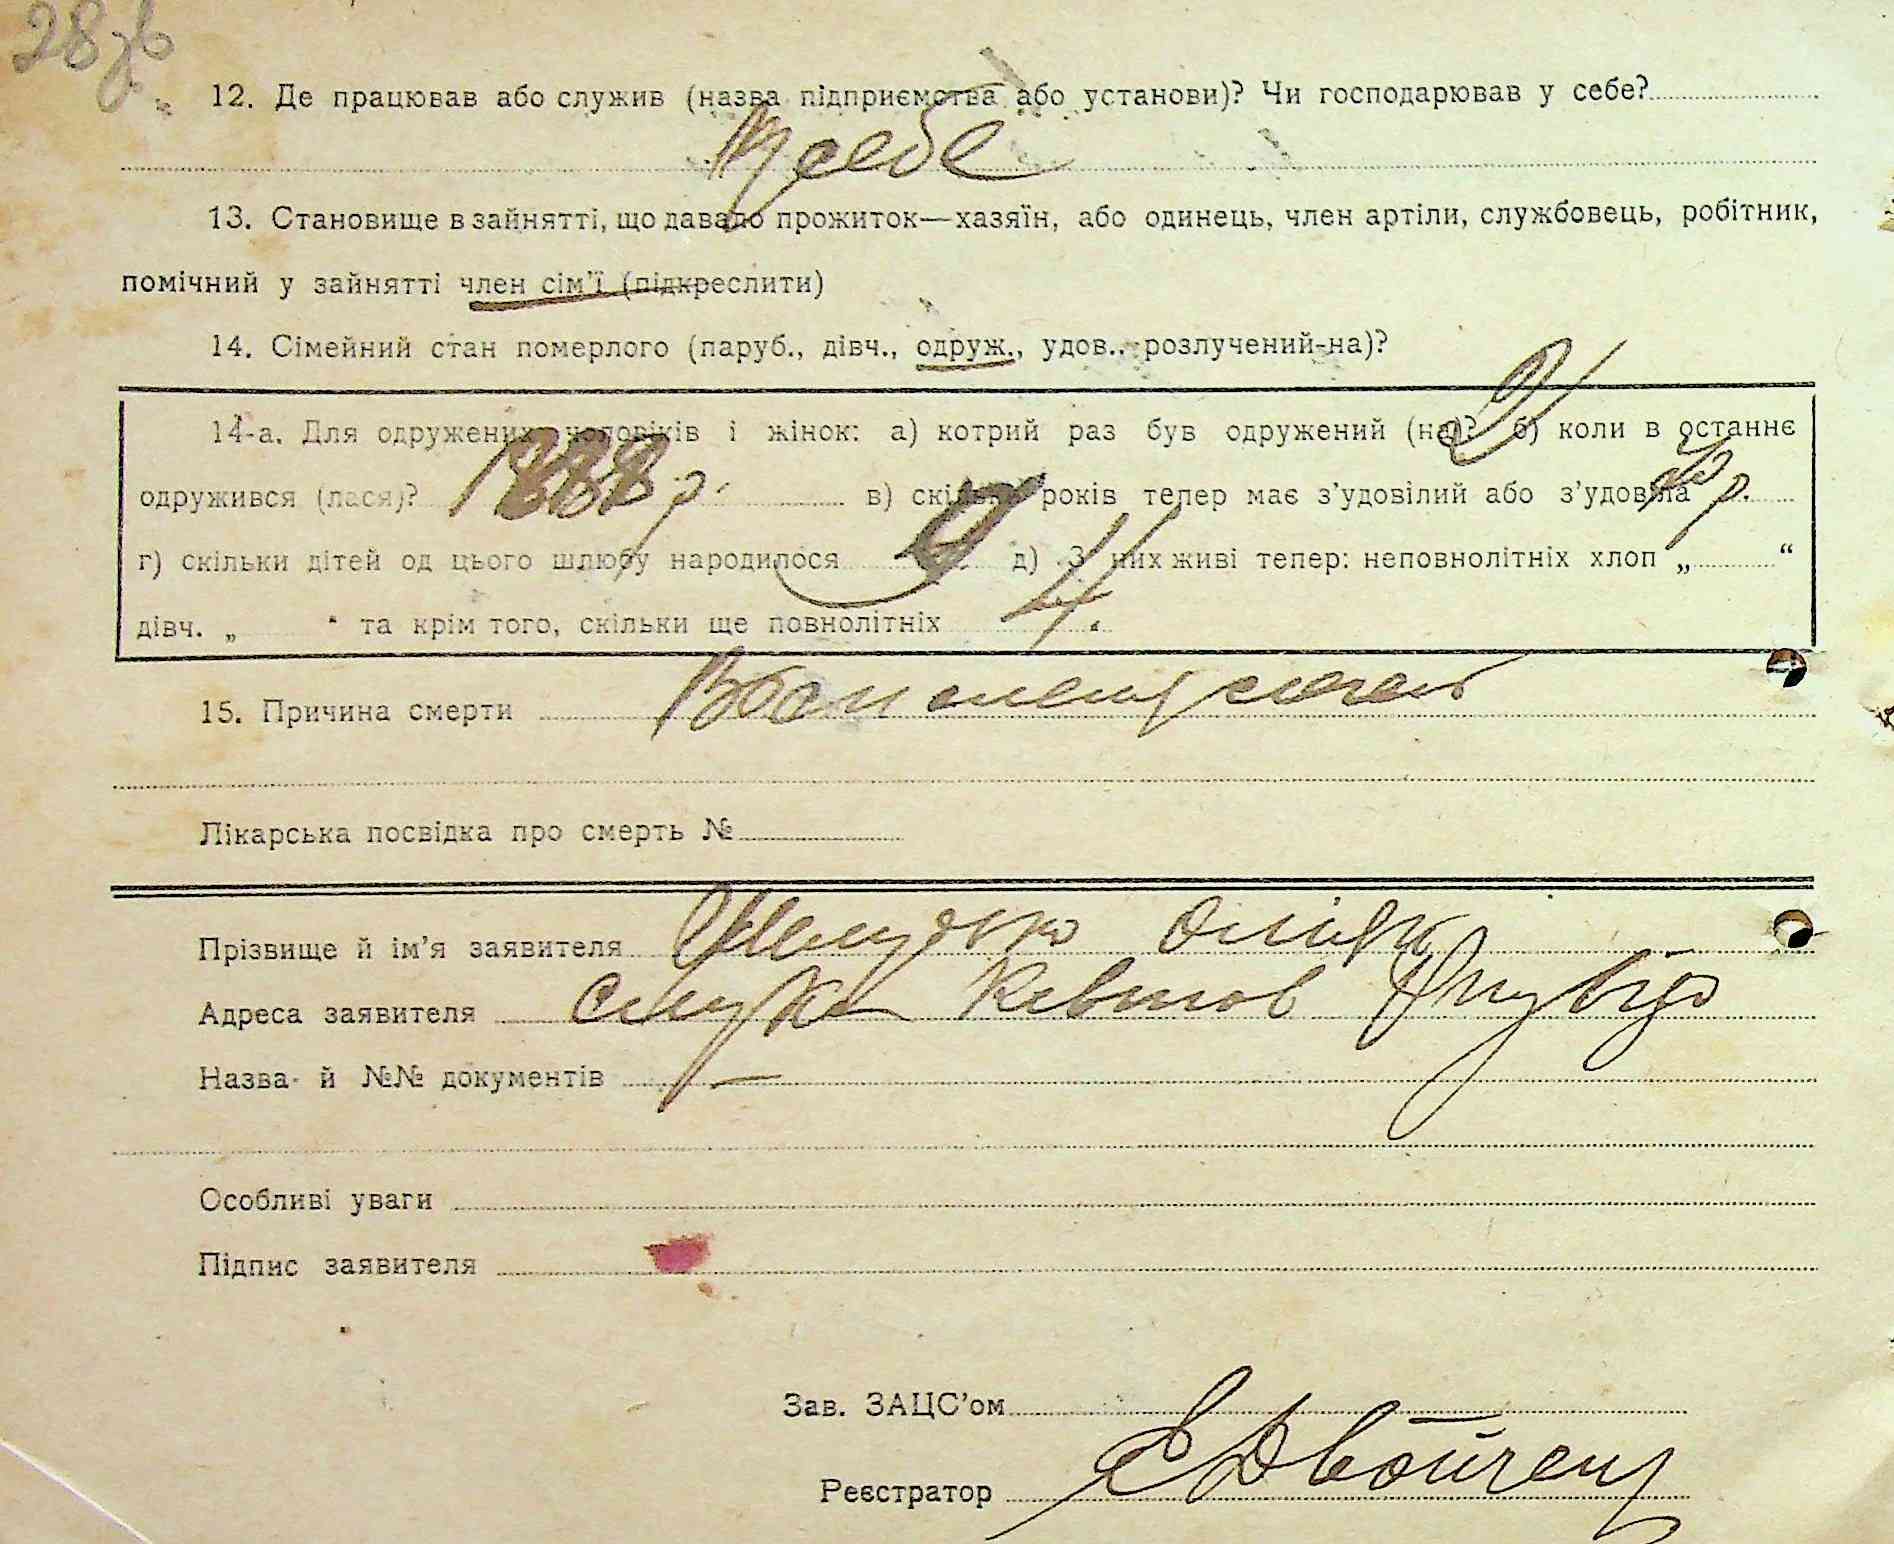 28зв
12. Де працював або служив (назва підприємства або установи)? Чи господарював у себе?
У себе
13. Становище в зайнятті, що давало прожиток—хазяїн, або одинець, член артіли, службовець, робітник,
помічний у зайнятті член сім'ї (підкреслити)
14. Сімейний стан померлого (паруб., дівч., одруж., удов., розлучений-на)?
14-а. Для одружених чоловіків і жінок: а) котрий раз був одружений (на)? 2 б) коли в останнє
одружився (лася)? 1888 р. в) скільки років тепер має з'удовілий або з'удовіла р.
г) скільки дітей од цього шлюбу народилося д) З них живі тепер: неповнолітніх хлоп „ “
дівч. „ “ та крім того, скільки ще повнолітніх 4.
15. Причина смерти
Лікарська посвідка про смерть №
Прізвище й ім'я заявителя
Адреса заявителя
Назва й №№ документів —
Особливі уваги
Підпис заявителя
Зав. ЗАЦС'ом
Реєстратор